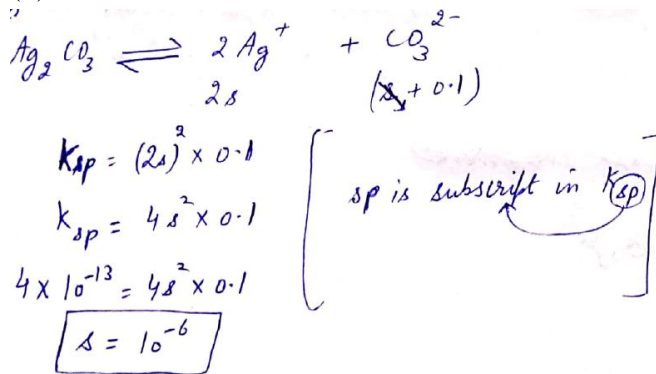 Ag₂CO₃ ⇌ 2Ag⁺ + CO₃²⁻
2s (s + 0.1)
Ksp = (2s)² × 0.1
Ksp = 4s² × 0.1
4 × 10⁻¹³ = 4s² × 0.1
s = 10⁻⁶
sp is subscript in Ksp